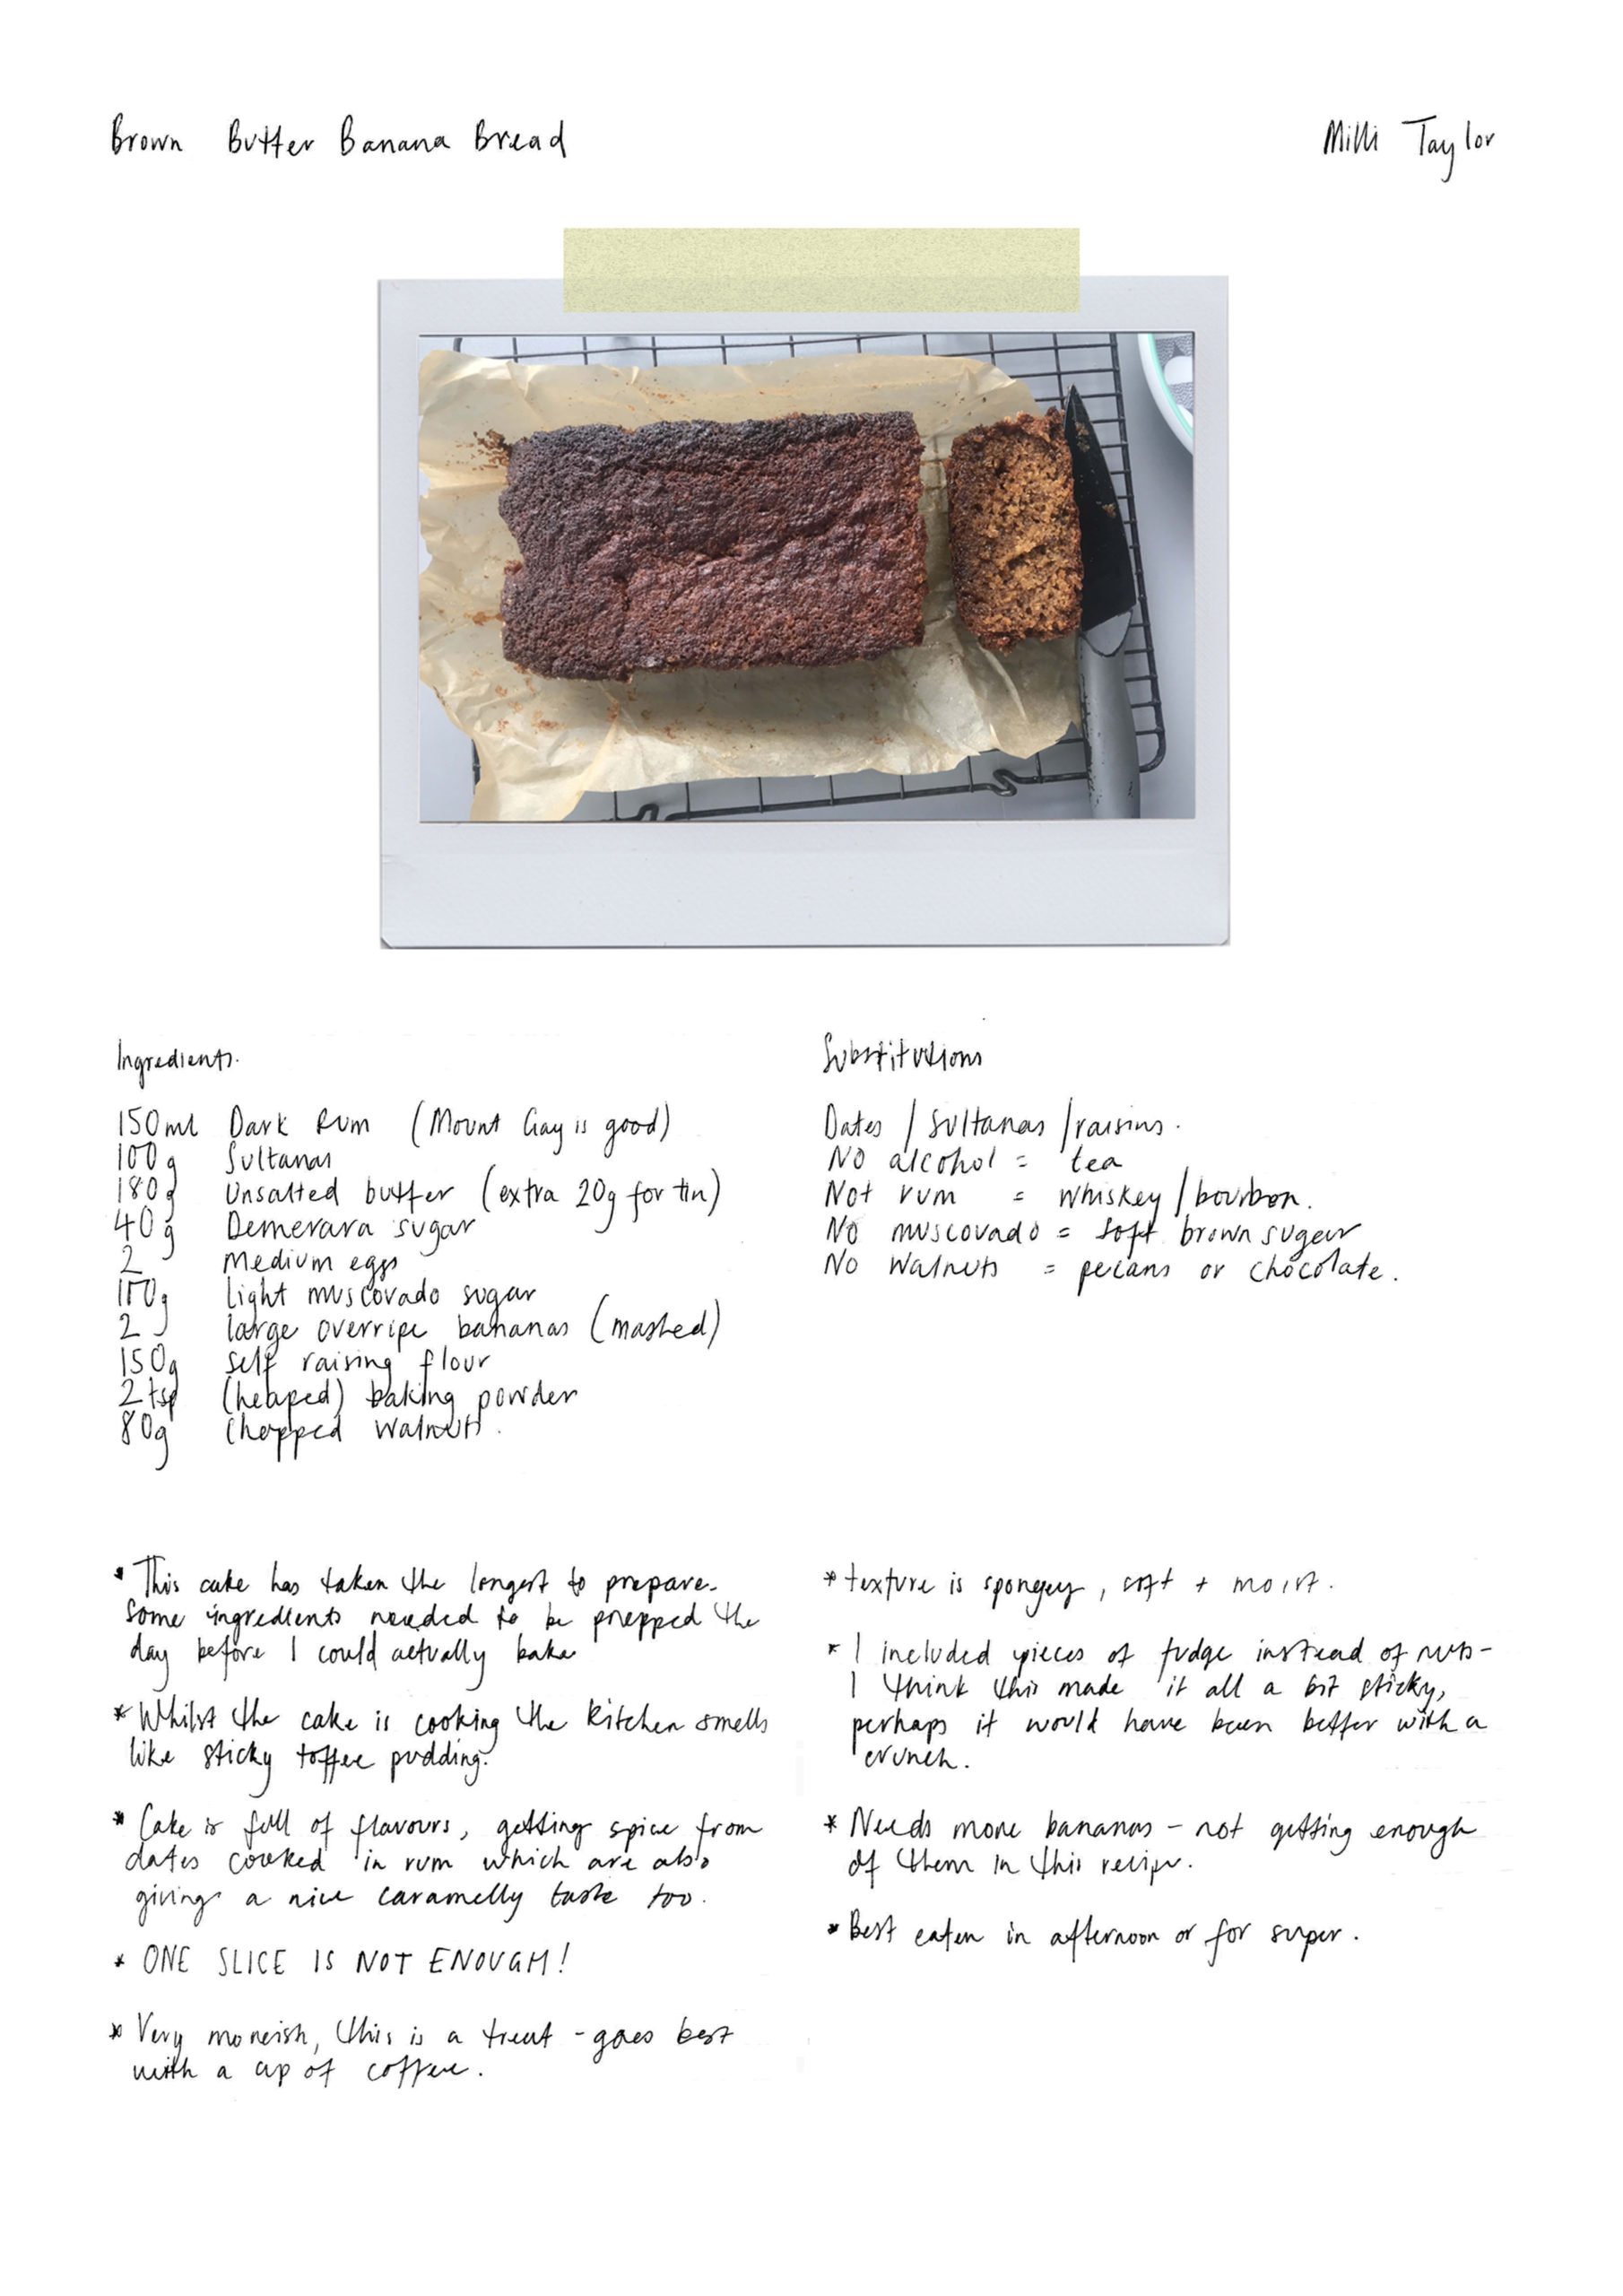 Brown Butter Banana Bread
Milli Taylor
Ingredients.
150ml Dark Rum (Mount Gay is good)
100g Sultanas
180g Unsalted butter (extra 20g for tin)
40g Demerara sugar
2 Medium eggs
light muscovado sugar
2 large overripe bananas (mashed)
150g self raising flour
2 tsp (heaped) baking powder
80g Chopped walnuts.
Substitutions
Dates / Sultanas / raisins.
No alcohol = tea
Not rum = whiskey / bourbon.
No muscovado = soft brown sugar
No Walnuts = pecans or chocolate.
* This cake has taken the longest to prepare.
Some ingredients needed to be prepped the
day before I could actually bake
* Whilst the cake is cooking the kitchen smells
like sticky toffee pudding.
* Cake is full of flavours, getting spice from
dates cooked in rum which are also
giving a nice caramelly taste too.
* ONE SLICE IS NOT ENOUGH!
* Very moreish, this is a treat - goes best
with a cup of coffee.
* texture is spongey, soft + moist.
* I included pieces of fudge instead of nuts -
I think this made it all a bit sticky,
perhaps it would have been better with a
crunch.
* Needs more bananas - not getting enough
of them in this recipe.
* Best eaten in afternoon or for super.